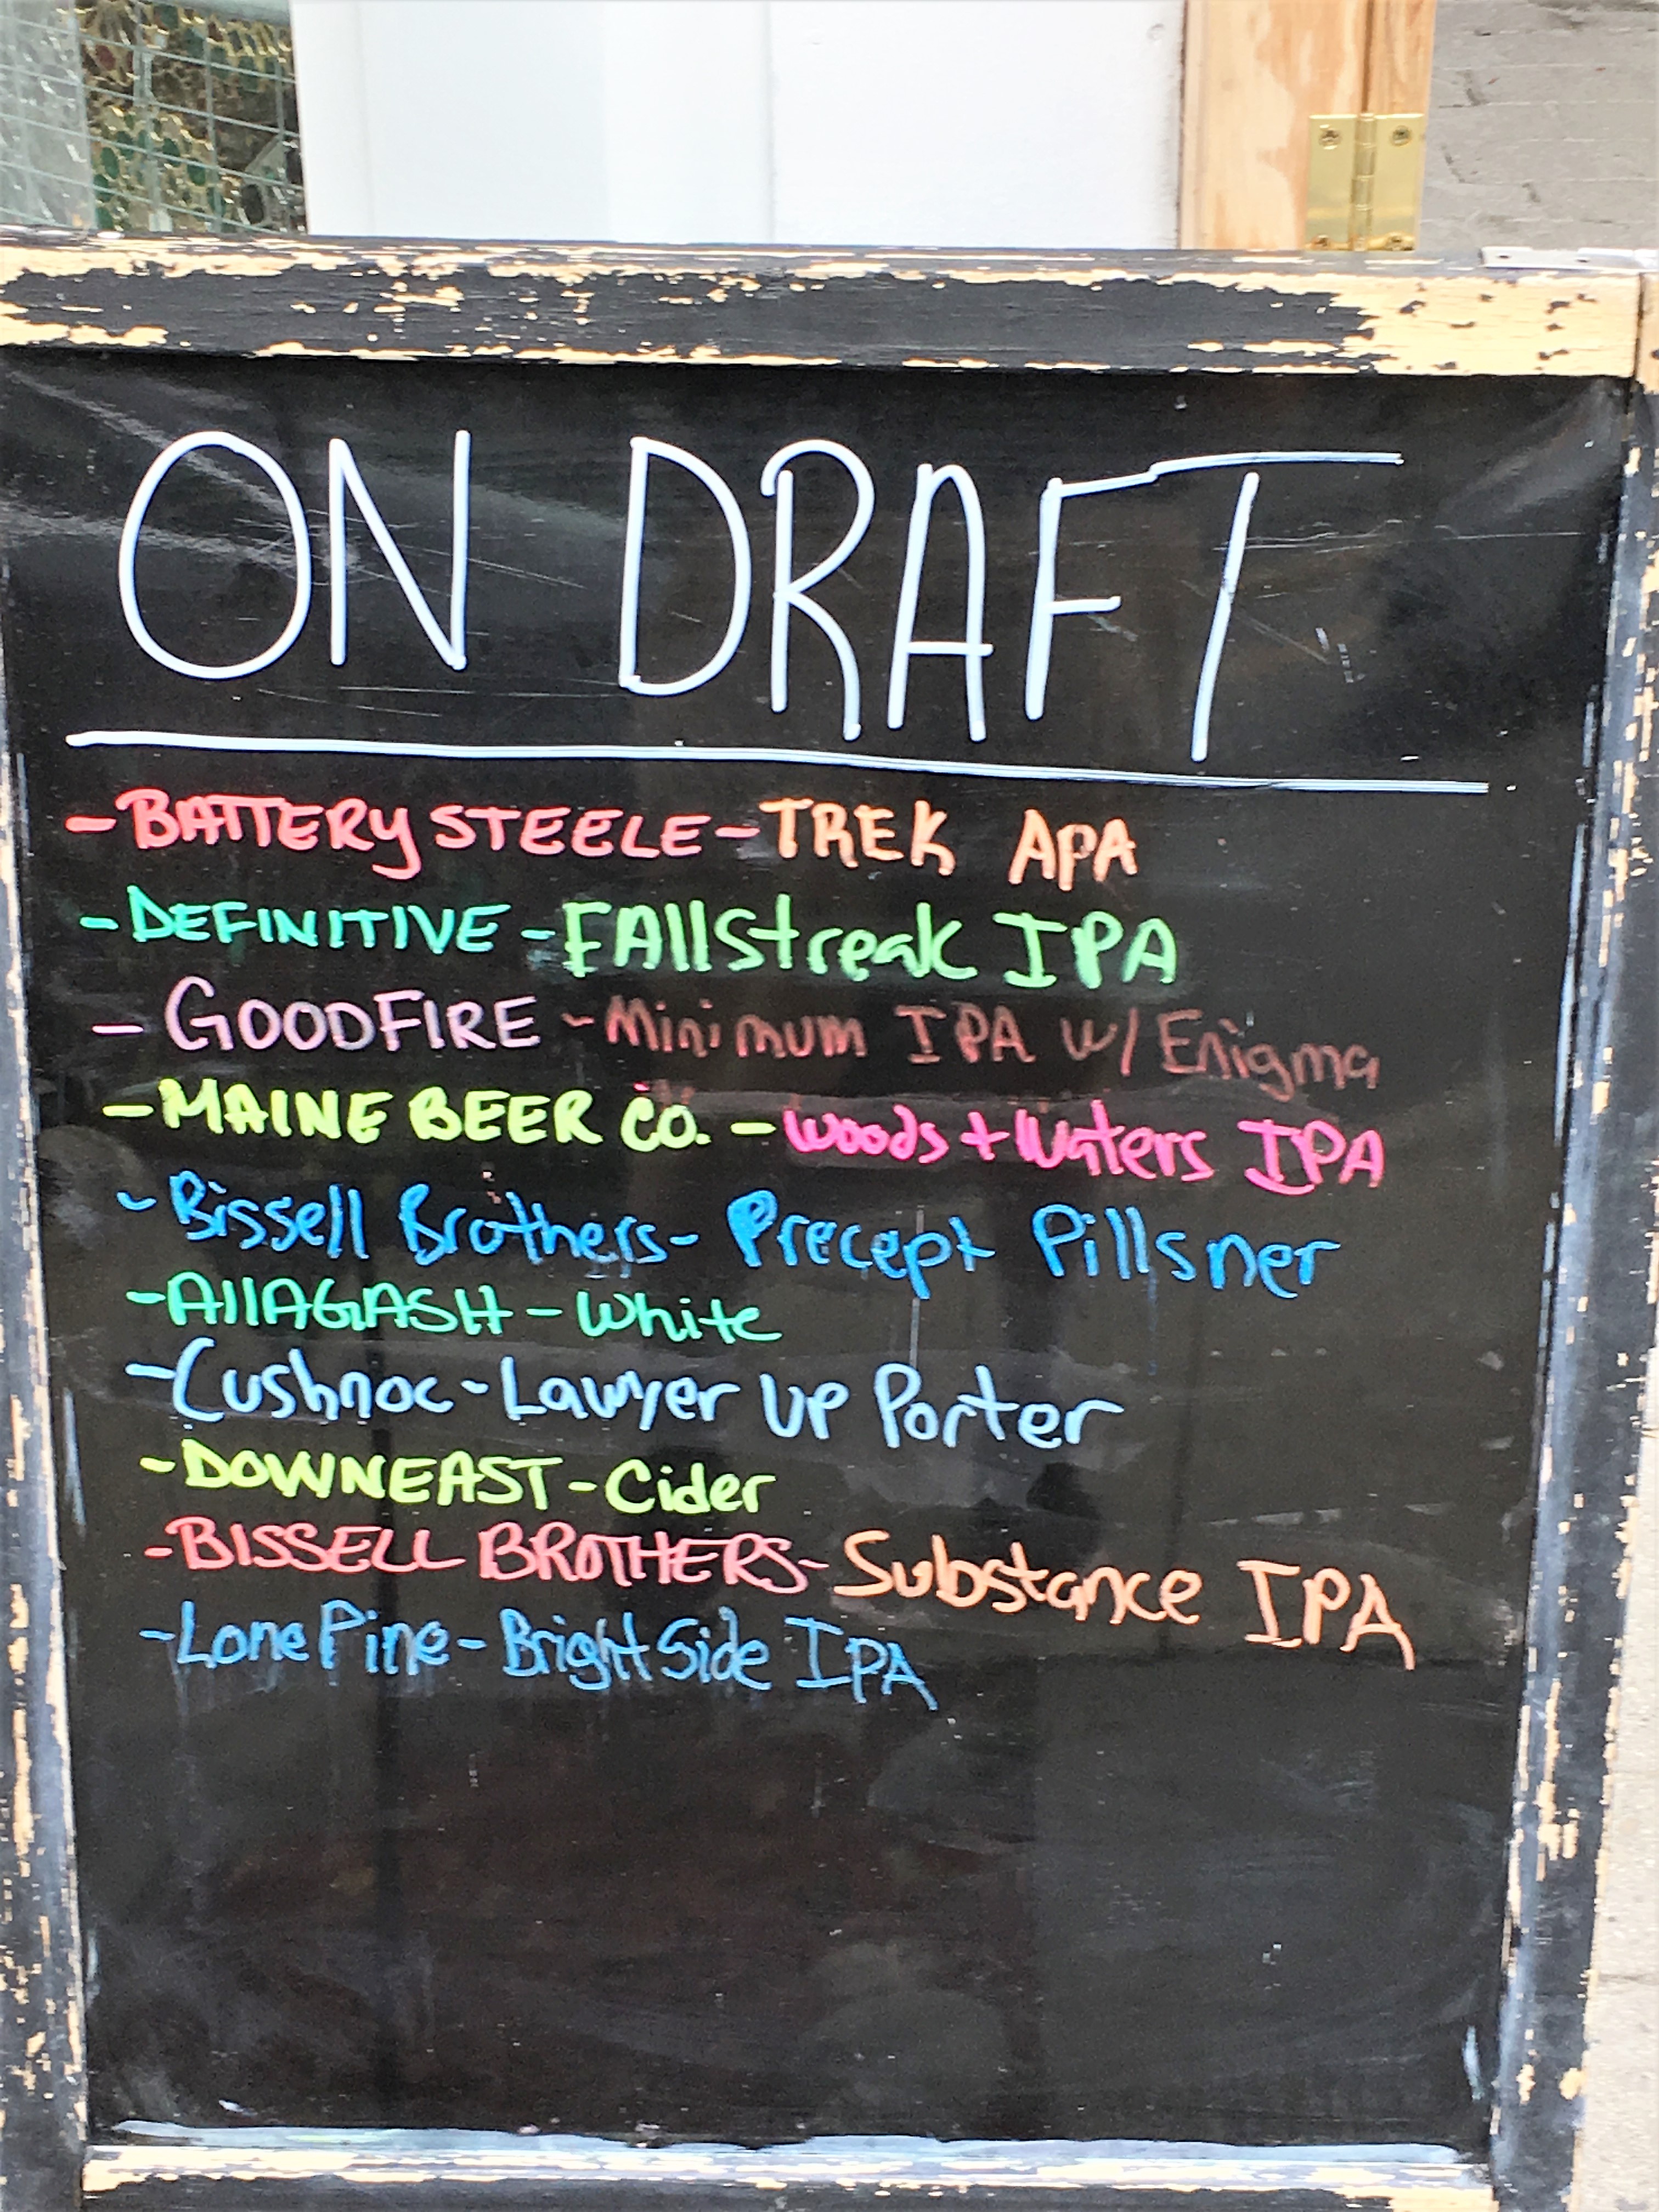 ON DRAFT
- BATTERY STEELE - TREK APA
- DEFINITIVE - FAllStreak IPA
- GOODFIRE - Minimum IPA w/ Enigma
- MAINE BEER CO. - Woods + Waters IPA
- Bissell Brothers - Precept Pillsner
- AllAGASH - White
- Cushnoc - Lawyer UP Porter
- DOWNEAST - Cider
- BISSELL BROTHERS - Substance IPA
- Lone Pine - Bright Side IPA